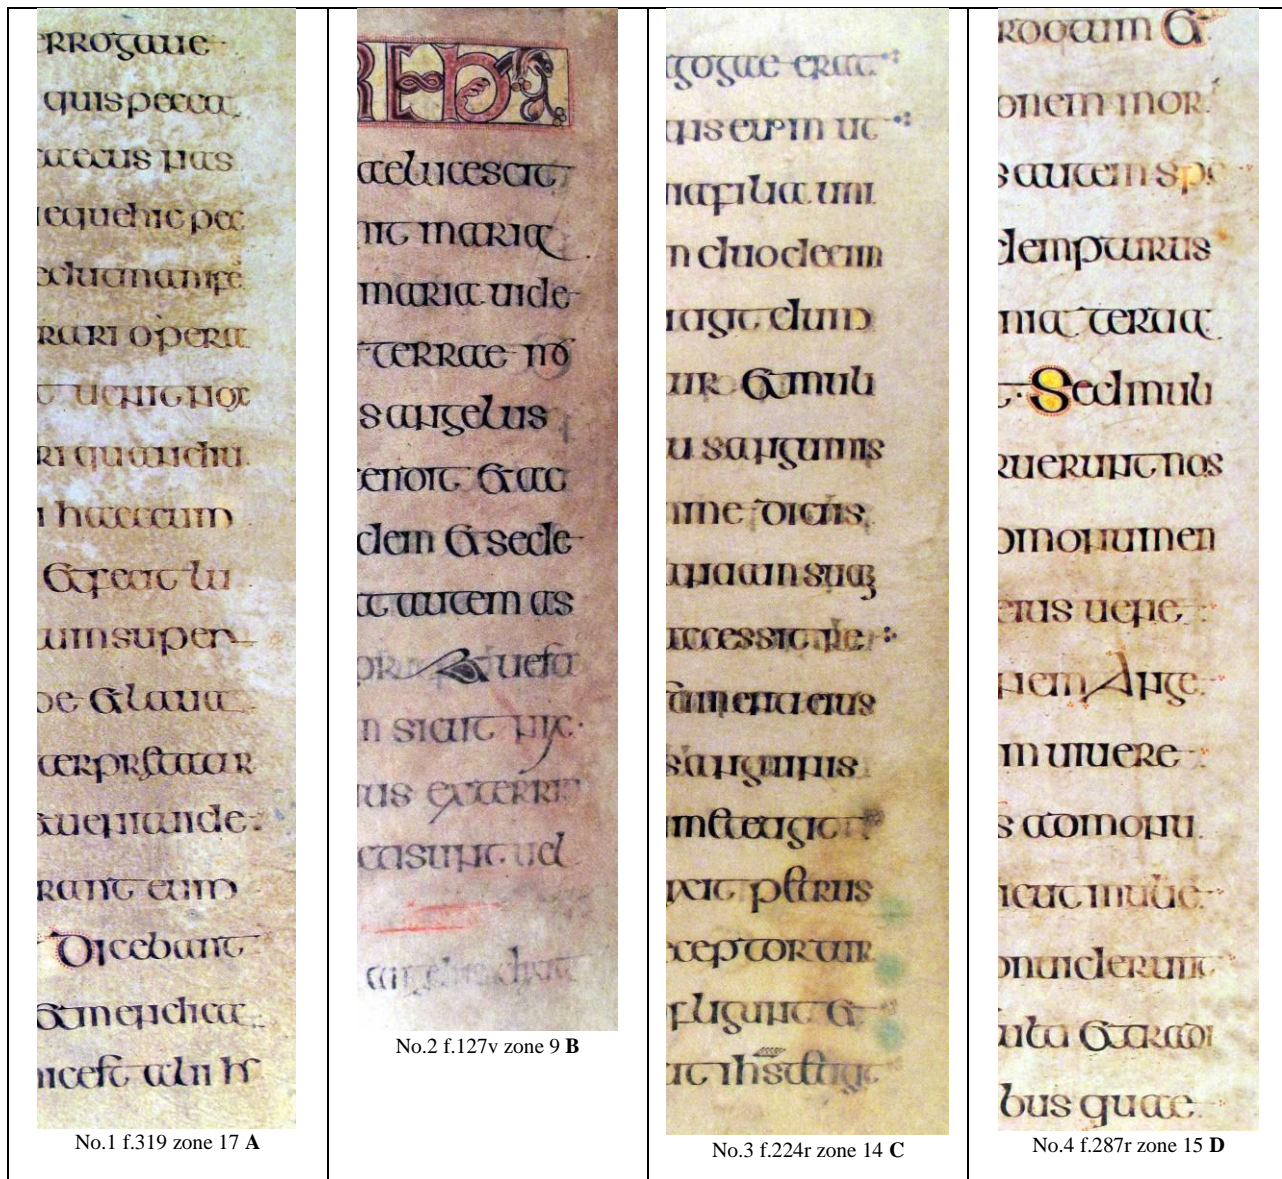 rrogaue
quis pecca
caecus nas
eque hic pec
ed ut manife
rari opera
t uenit nox
ri quamdiu
i haec cum
& fecit lu
um super
be & laua
terpretatur
t uenit uide
rant eum
Dicebant
& mendica
hic est alii h
No.1 f.319 zone 17 A
RE
ae lucescit
nit maria
maria uide
terrae mo
s angelus
cendit & ac
dem & sede
t autem as
& uesti
m sicut nix
tus exterri
ti sunt uel
angelus dixit
No.2 f.127v zone 9 B
gogae erat
eius eum ut
ia filia uni
n duodecim
tagit dum
ur & muli
u sanguinis
accessit re
timenta eius
sanguinis
me tetigit
xit petrus
ceptor tur
fligunt &
it ihs tetigi
No.3 f.224r zone 14 C
rogam &
onem mor
s autem spe
dempturus
nia tertia
t. Sed muli
ruerunt nos
monumen
eius uene
nem Ange
m uiuere
s ad monu
icut muli e
n uiderunt
nta & tradi
bus quae
No.4 f.287r zone 15 D